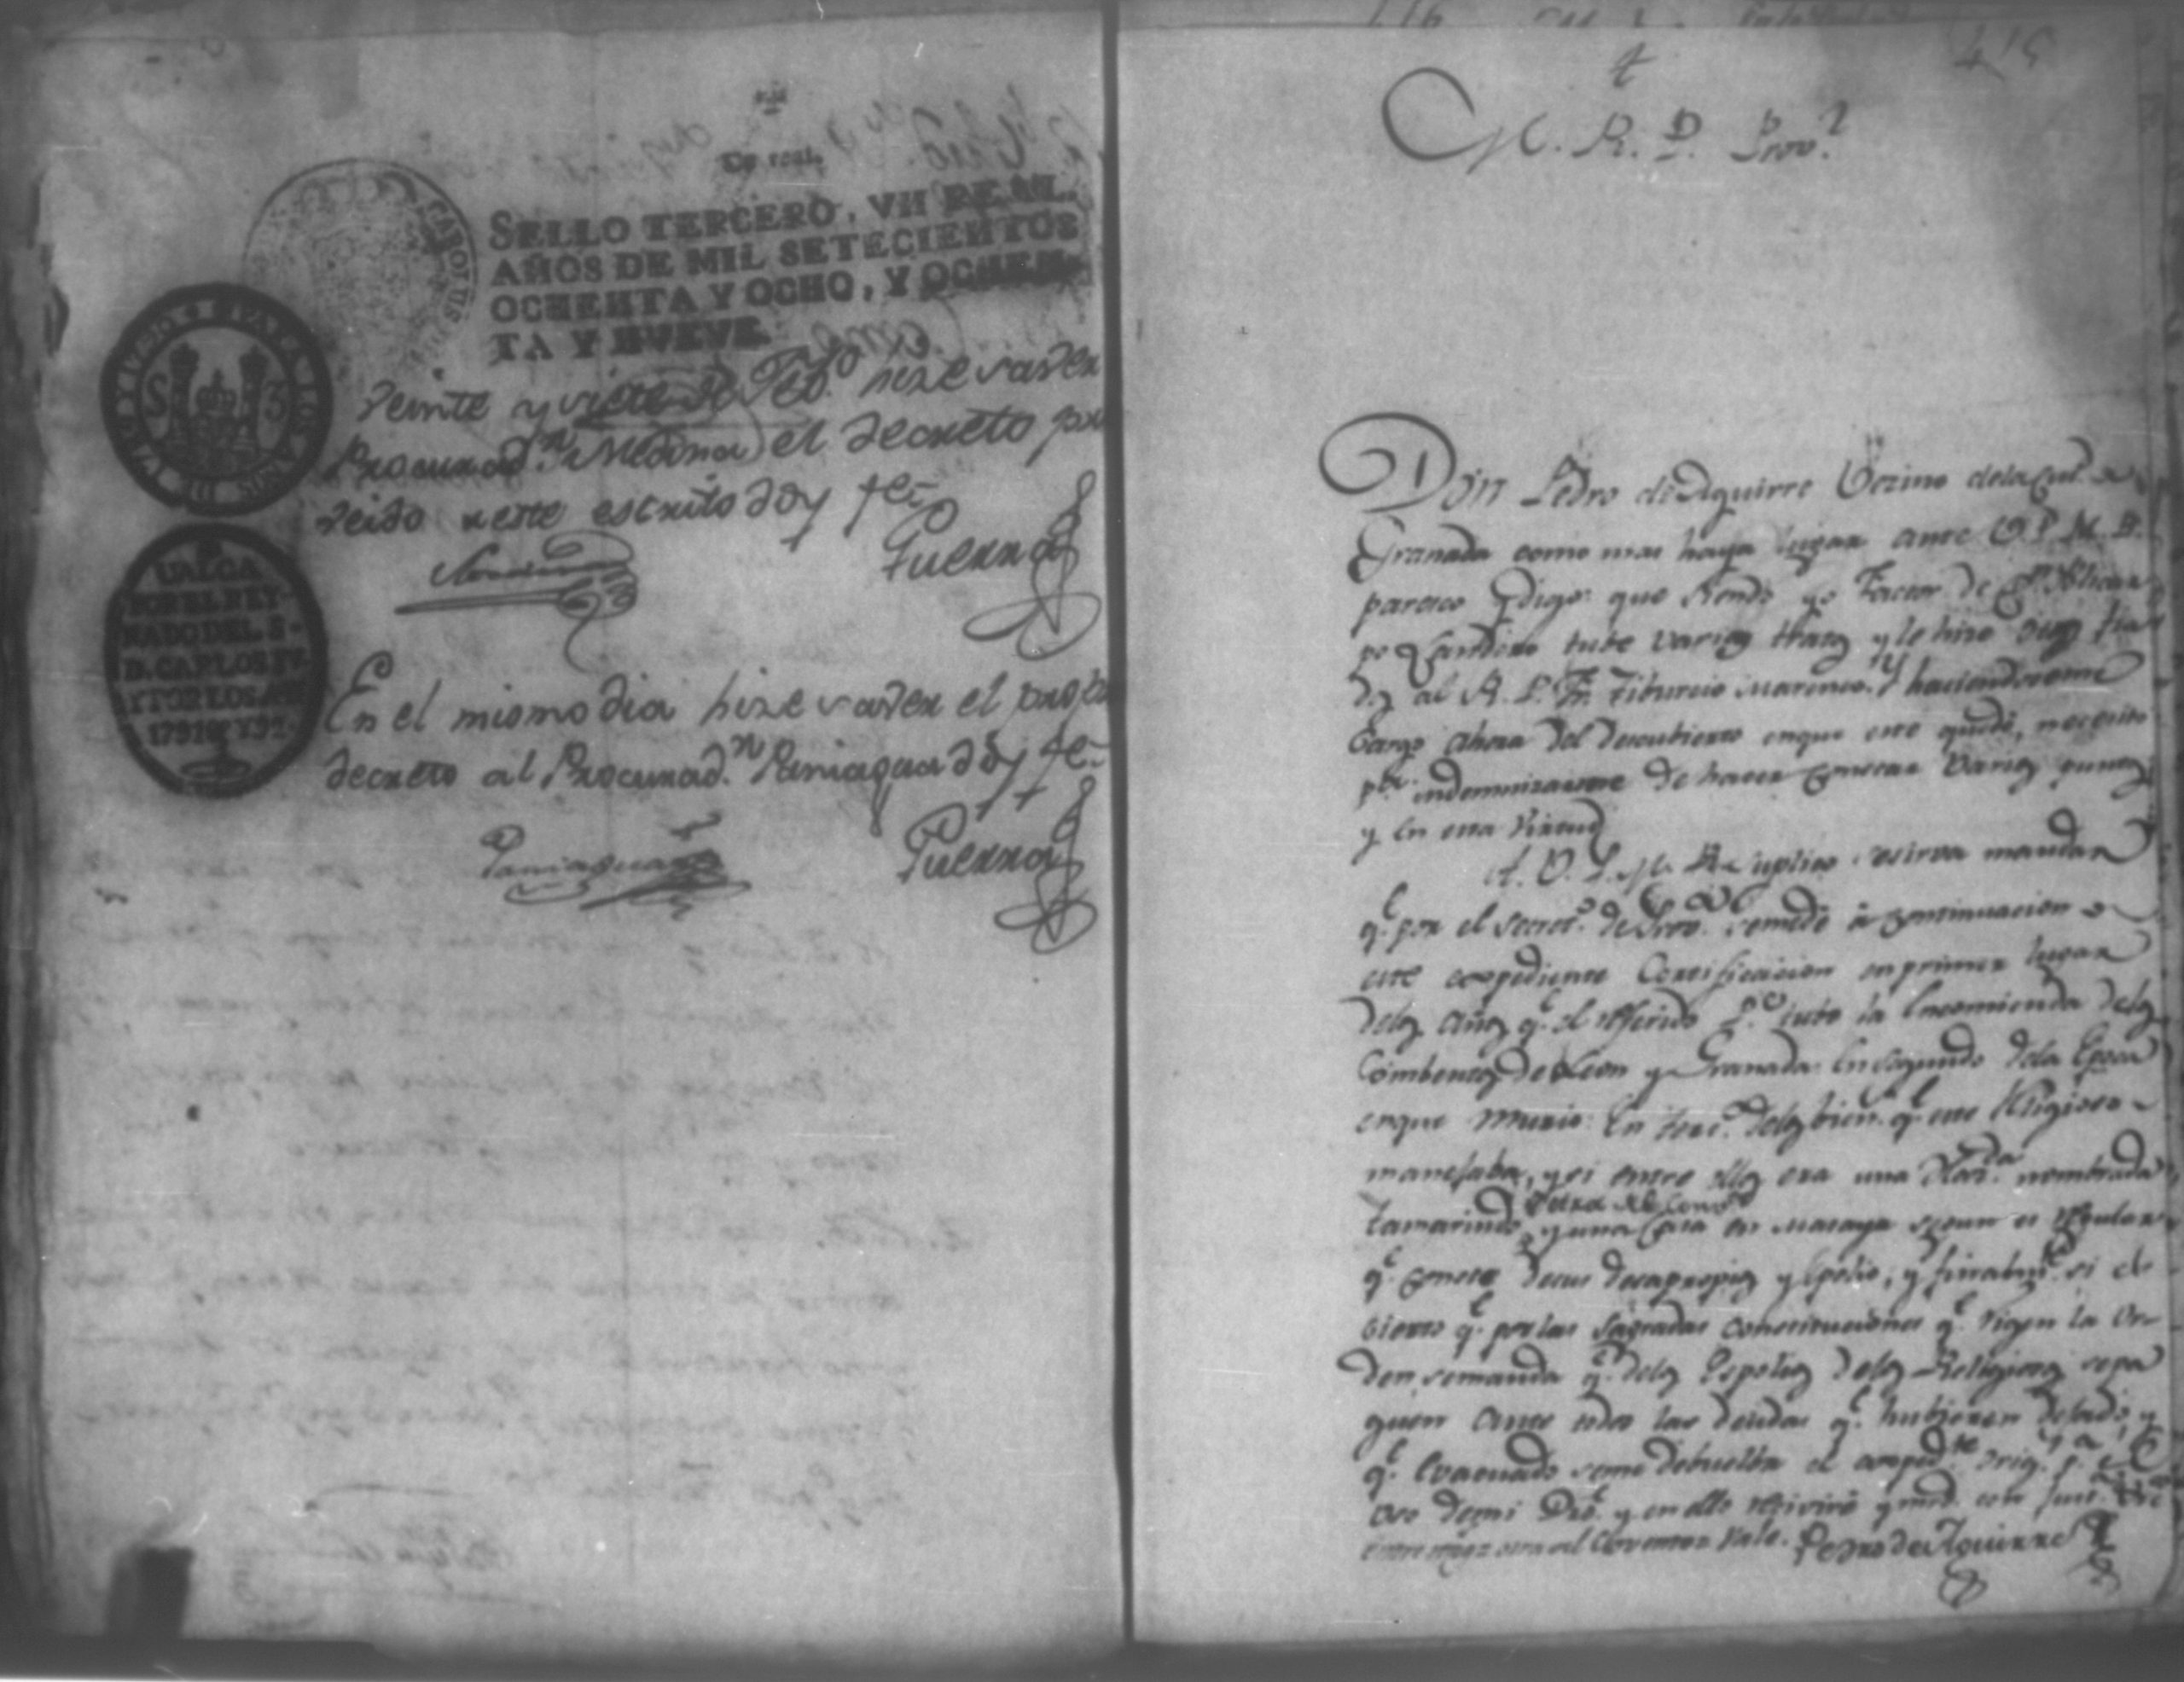 Un real.
SELLO TERCERO, VN REAL,
AÑOS DE MIL SETECIENTOS
OCHENTA Y OCHO, Y OCHEN-
TA Y NUEVE.
CAROLUS
S 3
VALGA
POR EL REY-
NADO DEL S.
D. CARLOS IV.
Y POR LOS AÑ
1791 Y 92
veinte y siete de Feb.o hize saver
Procurad.r Medina el decreto pro
veido n este escrito doy fe
Guerra
En el mismo dia hize saver el prop
decreto al Procurad.r Paniagua doy fe
Paniagua
Guerra
M. R. P. Prov.l
Don Pedro de Aguirre Vezino de la Ciu.d de
Granada como mas haya lugar ante V. P. M. R.
paresco y digo: que siendo yo Factor de
tube varios tratos y le hize
al R. P. Fr. Tiburcio y haciendoseme
Cargo ahora del descubierto enque este quedó, necesito
p.a indemnizarme de hacer constar varios puntos
y en esta virtud
A. V. P. M. R. suplico se sirva mandar
q.e por el Secret.o de Prov.a se me dé à continuacion de
este expediente Certificacion en primer lugar
delos años q.e el referido P.e tubo la Encomienda delos
Combentos de Leon y Granada: En segundo dela Epoca
enque murio: En terc.o delos bien.s q.e este Religioso
manejaba, y si entre ellos era una Haz.da nombrada
Tamarindo, y una Casa en Masaya segun es regular
q.e conste de sus desapropios y Espolio; y finalm.te si es
cierto q.e por las sagradas constituciones q.e rigen la Or-
den se manda q.e delos Espolios delos Religiosos se pa
guen ante todo las deudas q.e hubieren dejado, y
q.e Evacuado se me debuelba el exped.te orig.l p.a el
uso de mi Dro. y en ello reciviré
Vale. Pedro de Aguirre